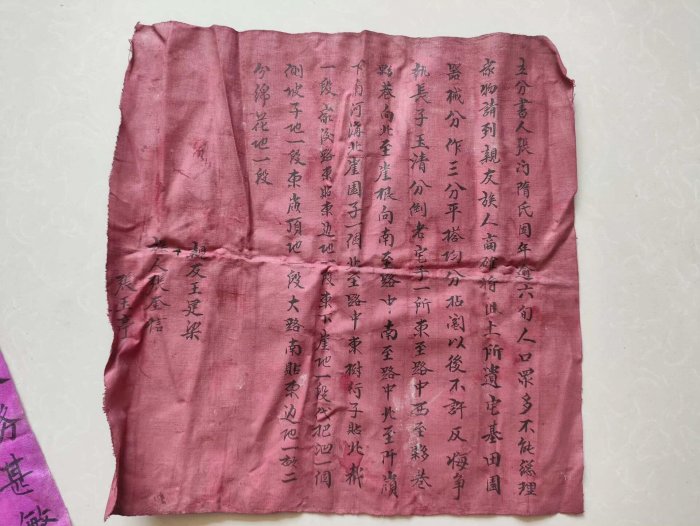 立分書人張門隋氏因年逾六旬人口眾多不能總理
家物請到親友族人商確將祖上所遺宅基田園
器械分作三分平搭均分拈鬮以後不許反悔爭
執長子玉清分到老宅子一所東至路中西至夥巷
夥巷向北至崖根向南至路中南至路中北至阡嶺
下南河海北崖園子一個北至路中東樹行子貼北
一段東邊地一段東小崖地一段泊一個
側坡子地一段東嶺頂地一段大路南貼東邊地一
分綿花地一段
親友王建梁
族人張奎信
張玉
务甚敏